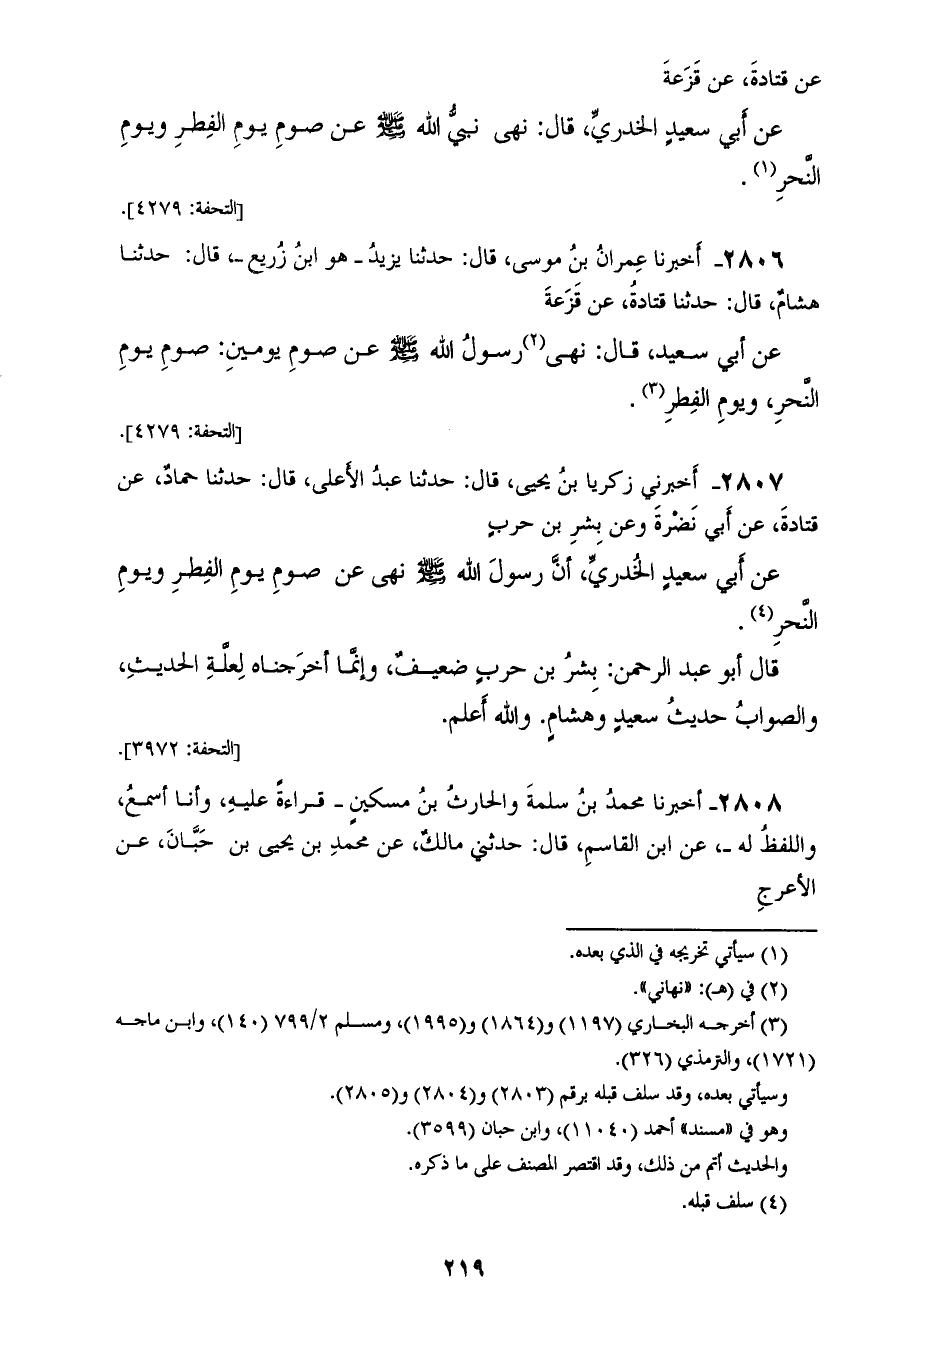 عن قتادةَ، عن قَزَعةَ
عن أَبي سعيدٍ الخدريِّ، قال: نهى نبيُّ الله ﷺ عن صومِ يومِ الفِطرِ ويومِ
النَّحرِ(١).
[التحفة: ٤٢٧٩].
٢٨٠٦ـ أَخبرنا عِمرانُ بنُ موسى، قال: حدثنا يزيدُ ـ هو ابنُ زُريع ـ، قال: حدثنا
هشامٌ، قال: حدثنا قتادةُ، عن قَزَعةَ
عن أبي سعيد، قال: نهى(٢) رسولُ الله ﷺ عن صومِ يومينِ: صومِ يومِ
النَّحرِ، ويومِ الفِطرِ(٣).
[التحفة: ٤٢٧٩].
٢٨٠٧ـ أَخبرني زكريا بنُ يحيى، قال: حدثنا عبدُ الأَعلى، قال: حدثنا حمادٌ، عن
قتادةَ، عن أَبي نَضْرةَ وعن بِشرِ بن حربٍ
عن أَبي سعيدٍ الخُدريِّ، أنَّ رسولَ الله ﷺ نهى عن صومِ يومِ الفِطرِ ويومِ
النَّحرِ(٤).
قال أبو عبد الرحمن: بِشرُ بن حربٍ ضعيفٌ، وإنَّما أخرَجناه لِعلَّةِ الحديثِ،
والصوابُ حديثُ سعيدٍ وهشامٍ. والله أَعلم.
[التحفة: ٣٩٧٢].
٢٨٠٨ـ أخبرنا محمدُ بنُ سلمةَ والحارثُ بنُ مسكينٍ ـ قراءةً عليهِ، وأنا أسمعُ،
واللفظُ له ـ، عن ابن القاسمِ، قال: حدثني مالكٌ، عن محمدِ بن يحيى بن حَبَّانَ، عن
الأعرجِ
(١) سيأتي تخريجه في الذي بعده.
(٢) في (هـ): «نهاني».
(٣) أخرجه البخاري (١١٩٧) و(١٨٦٤) و(١٩٩٥)، ومسلم ٧٩٩/٢ (١٤٠)، وابن ماجه
(١٧٢١)، والترمذي (٣٢٦).
وسيأتي بعده، وقد سلف قبله برقم (٢٨٠٣) و(٢٨٠٤) و(٢٨٠٥).
وهو في «مسند» أحمد (١١٠٤٠)، وابن حبان (٣٥٩٩).
والحديث أتم من ذلك، وقد اقتصر المصنف على ما ذكره.
(٤) سلف قبله.
٢١٩